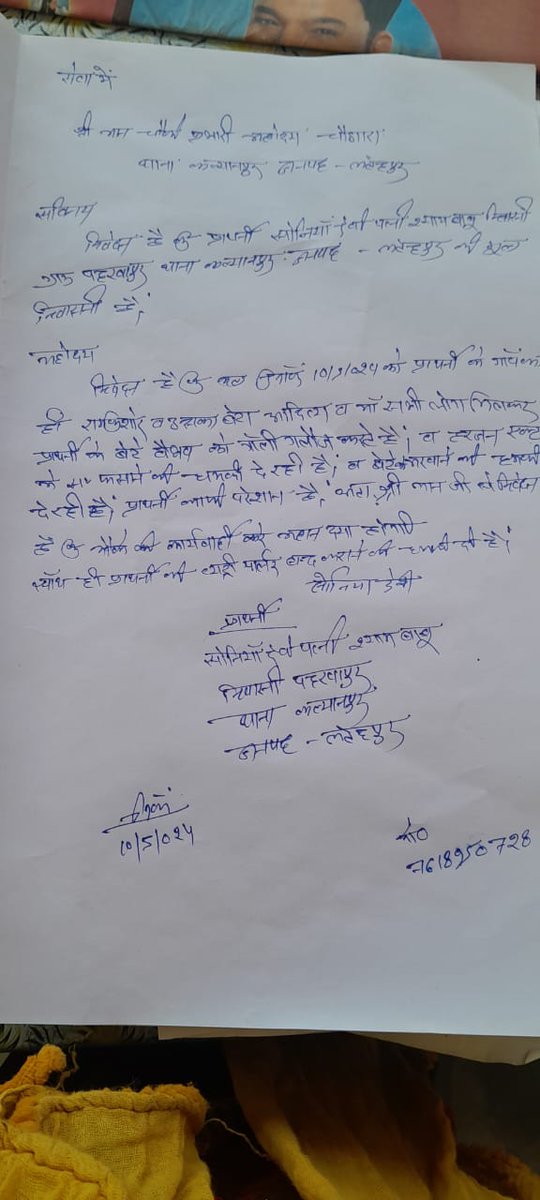 सेवा में
श्री मान चौकी प्रभारी महोदय चौडगरा
थाना कल्यानपुर जनपद - फतेहपुर
सविनय
निवेदन है कि प्रार्थनी सोनियाँ देवी पत्नी श्याम बाबू निवासी
ग्राम पहरवापुर थाना कल्यानपुर जनपद - फतेहपुर की मूल
निवासनी है।
महोदय
निवेदन है कि कल दिनाँक 10/5/024 को प्रार्थनी के गाँव के
ही रामकिशोर व उसका बेटा आदित्य व माँ सभी लोग मिलकर
प्रार्थनी के बेटे वैभव को गाली गलौज करते हैं। व हरजन एक्ट
को फसाने की धमकी दे रही है। व की धमकी
दे रही है। प्रार्थनी काफी परेशान है। अतः श्री मान जी से निवेदन
है कि मौके की कार्यवाही करे महान दया होगी
साथ ही प्रार्थनी की ब्यूटी पार्लर बन्द कराने की धमकी दी है।
सोनिया देवी
प्रार्थनी
सोनियाँ देवी पत्नी श्याम बाबू
निवासी पहरवापुर
थाना कल्यानपुर
जनपद - फतेहपुर
दिनाँक
10/5/024
मो०
7618950728